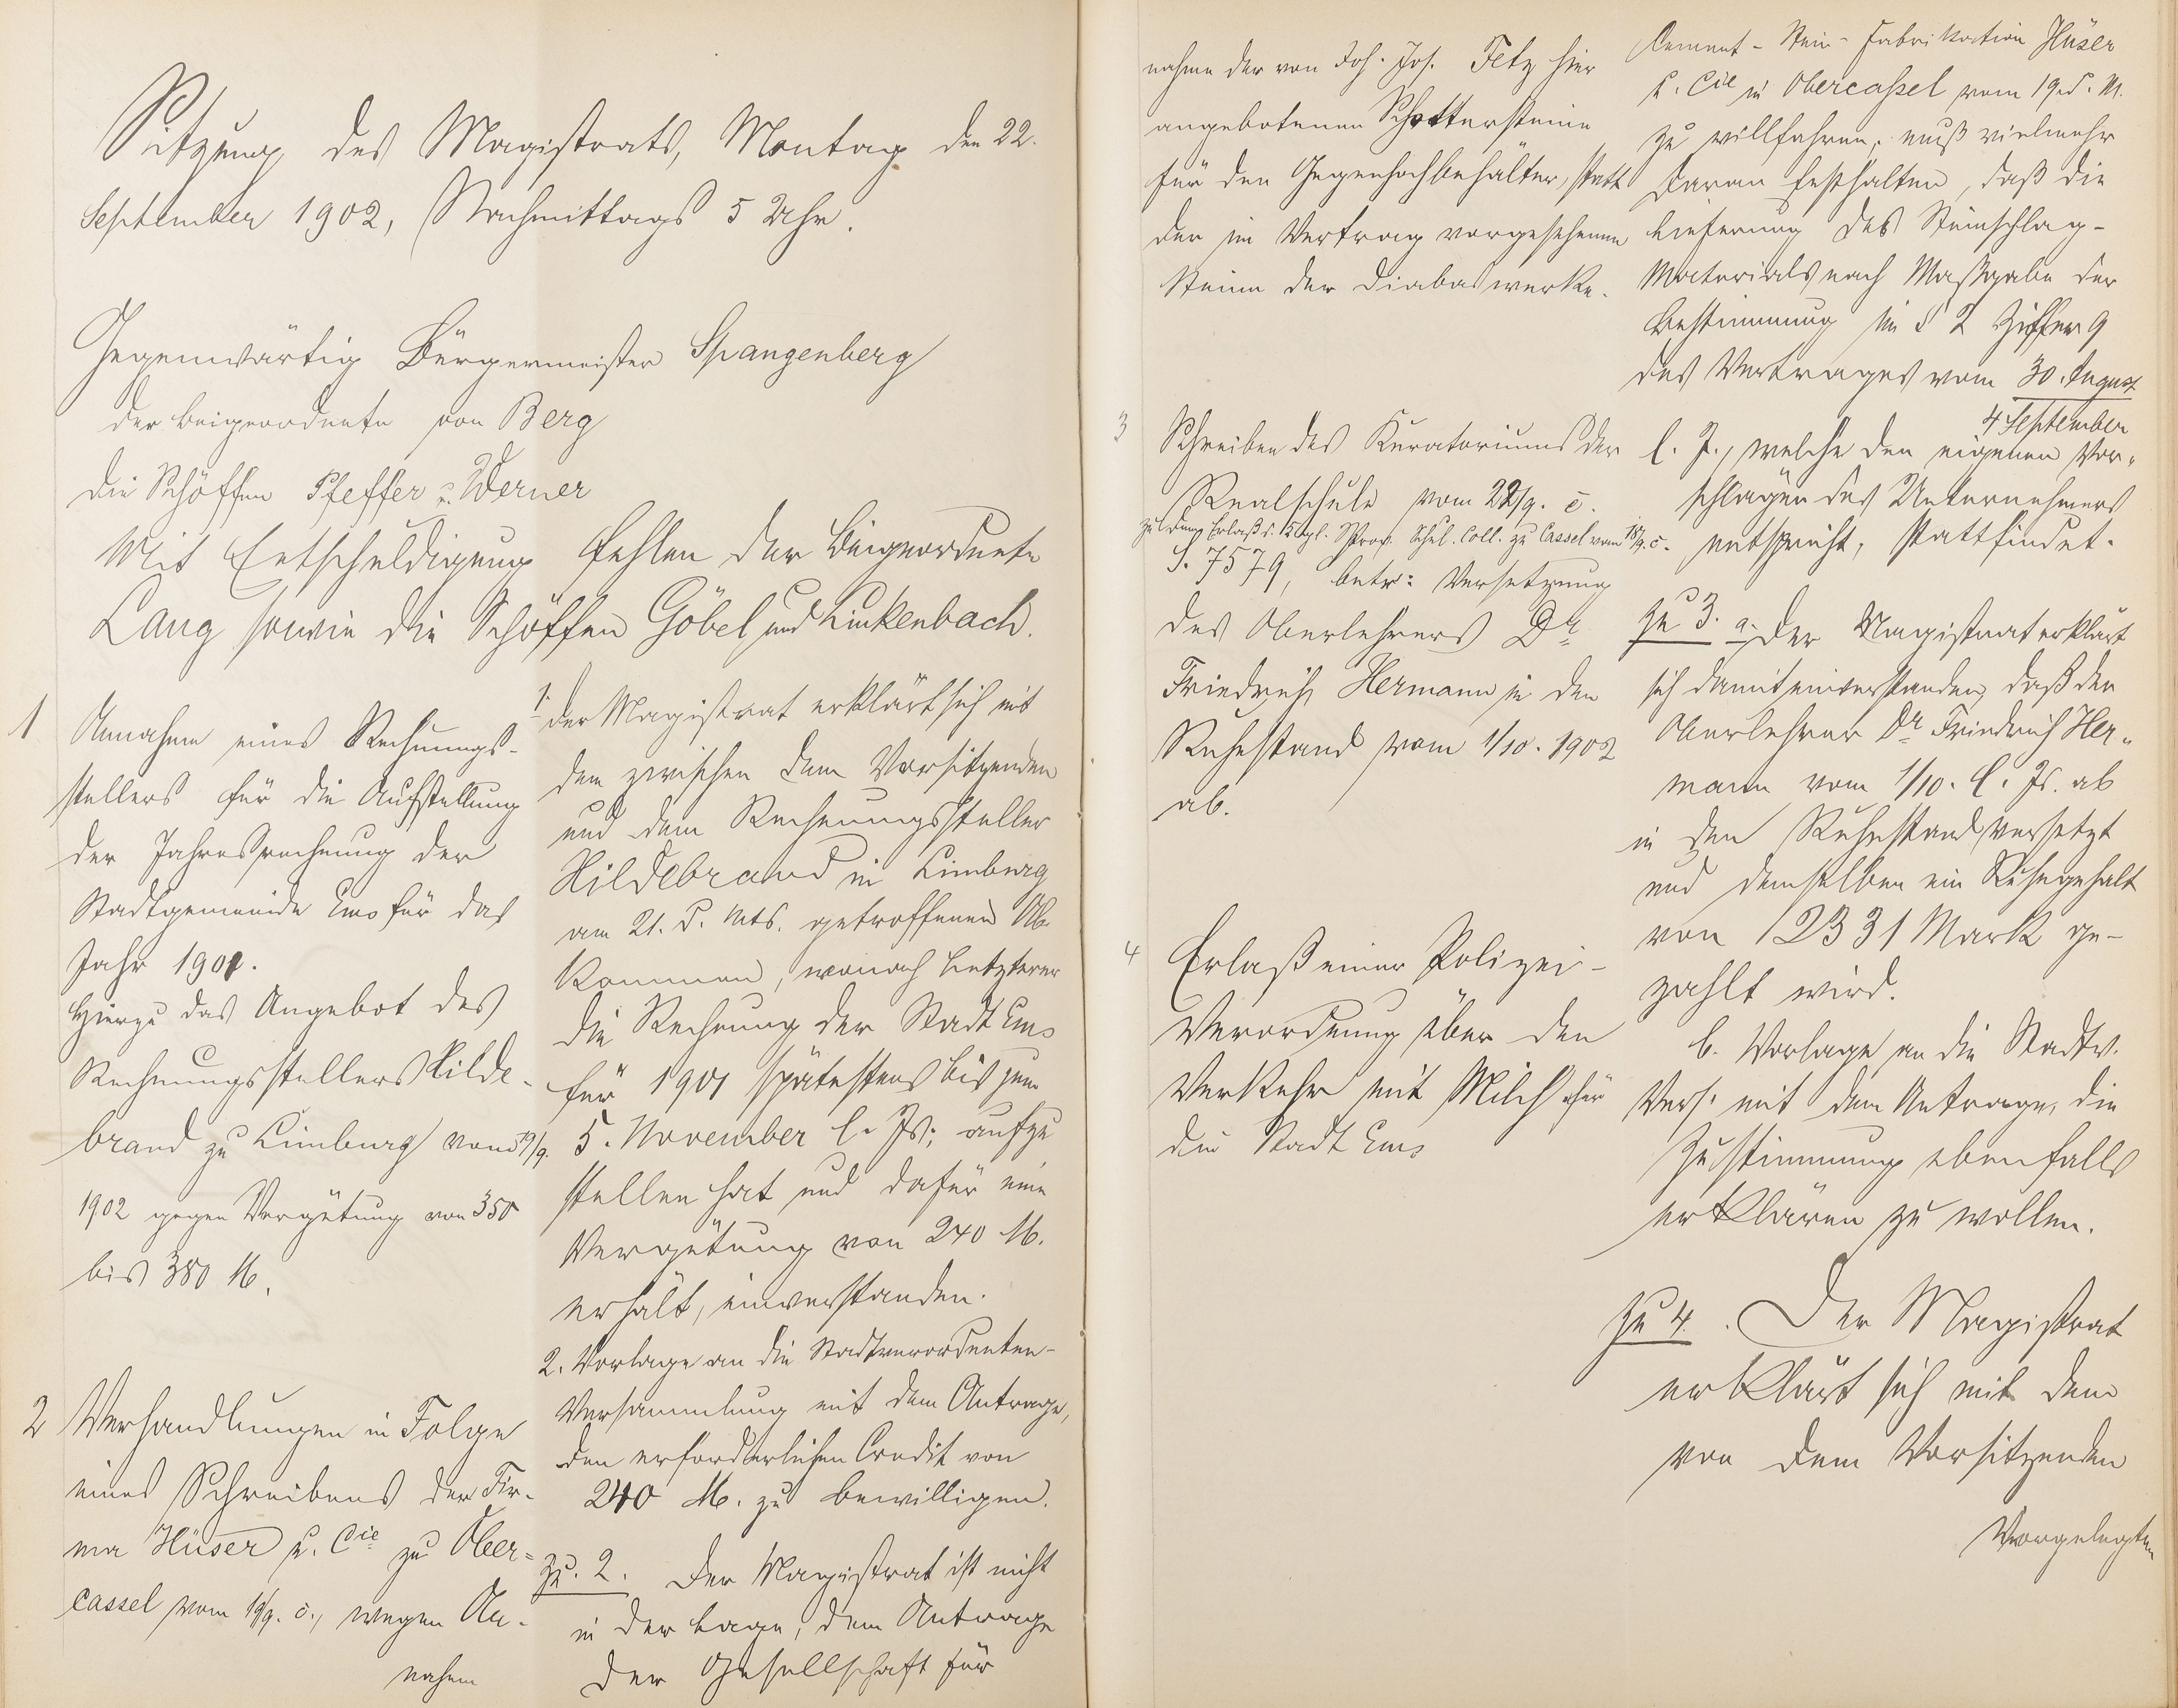 Sitzung des Magistrats, Montag den 22.
September 1902, Nachmittags 5 Uhr.
Gegenwärtig Bürgermeister Spangenberg
der Beigeordnete von Berg
die Schöffen Pfeffer u. Werner
Mit Entschuldigung fehlen der Beigeordnete
Lang sowie die Schöffen Göbel und Linkenbach.
1
Annahme eines Rechnungs-
stellers für die Aufstellung
der Jahresrechnung der
Stadtgemeinde Ems für das
Jahr 1901.
Hierzu das Angebot des
Rechnungsstellers Hilde-
brand zu Limburg vom 19/9.
1902 gegen Vergütung von 350
bis 380 M.
2
Verhandlungen in Folge
eines Schreibens der Fir-
ma Hüser u. Cie zu Ober-
cassel vom 19/9. c., wegen An-
nahme
1. Der Magistrat erklärt sich mit
dem zwischen dem Vorsitzenden
und dem Rechnungssteller
Hildebrand in Limburg
am 21. d. Mts. getroffenen Ab-
kommen, wonach Letzterer
die Rechnung der Stadt Ems
für 1901 spätestens bis zum
5. November l. Js. aufzu
stellen hat und dafür eine
Vergütung von 240 M.
erhält, einverstanden.
2. Vorlage an die Stadtverordneten-
Versammlung mit dem Antrage,
den erforderlichen Credit von
240 M. zu bewilligen.
zu. 2. Der Magistrat ist nicht
in der Lage, dem Antrage
der Gesellschaft für
nahme der von Joh. Jos. Fetz hier
angebotenen Schottersteine
für den Gegenhochbehälter, statt
der im Vertrag vorgesehenen
Steine der Diabaswerke.
3
Schreiben des Kuratoriums der
Realschule vom 22/9. c.
zu dem Erlaß d. Kgl. Prov. Schul. Coll. zu Cassel vom 18/9. c.
S. 7579, betr: Versetzung
des Oberlehrers Dr
Friedrich Hermann in den
Ruhestand vom 1/10. 1902
ab.
4
Erlaß einer Polizei-
Verordnung über den
Verkehr mit Milch für
die Stadt Ems
Cement-Stein-Fabrikation Hüser
u. Cie in Obercassel vom 19. d. M.
zu willfahren, muß vielmehr
daran festhalten, daß die
Lieferung des Steinschlag-
Materials nach Maßgabe der
Bestimmung im § 2 Ziffer 9
des Vertrages vom 30. August
4 September
l. J., welche den eigenen Vor-
schlägen des Unternehmers
entspricht, stattfindet.
zu 3. a. Der Magistrat erklärt
sich damit einverstanden, daß der
Oberlehrer Dr Friedrich Her-
mann vom 1/10. l. Js. ab
in den Ruhestand versetzt
und demselben ein Ruhegehalt
von 2331 Mark ge-
zahlt wird.
b. Vorlage an die Stadtv.
Vers. mit dem Antrage, die
Zustimmung ebenfalls
erklären zu wollen.
zu 4. Der Magistrat
erklärt sich mit dem
von dem Vorsitzenden
Vorgelegten